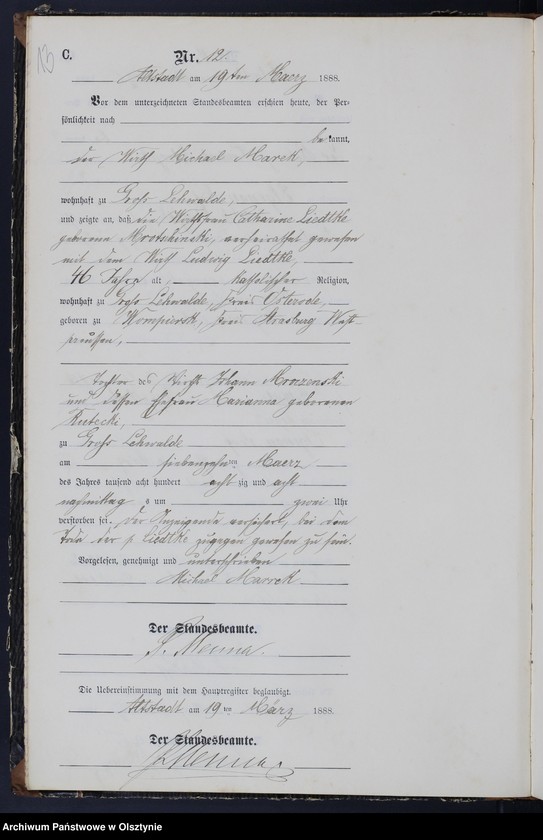 13
C.
Nr. 12.
Altstadt am 19ten Maerz 1888.
Vor dem unterzeichneten Standesbeamten erschien heute, der Per-
sönlichkeit nach
bekannt,
der Wirth Michael Marek,
wohnhaft zu Groß Lehwalde,
und zeigte an, daß die Wirthsfrau Catharine Liedtke
geborene verheirathet gewesen
mit dem Wirth Ludwig Liedtke,
46 Jahre alt, katholischer Religion,
wohnhaft zu Groß Lehwalde, Kreis Osterode,
geboren zu Wompiersk, Kreis Strasburg West-
preussen,
Tochter des Wirths Johann
und dessen Ehefrau Marianna geborenen
Rutecki,
zu Groß Lehwalde
am siebenzehnten Maerz
des Jahres tausend acht hundert achtzig und acht
nachmittags um zwei Uhr
verstorben sei. Der Anzeigende versichert, bei dem
Tode der p. Liedtke zugegen gewesen zu sein.
Vorgelesen, genehmigt und unterschrieben
Michael Marrek
Der Standesbeamte.
Die Uebereinstimmung mit dem Hauptregister beglaubigt.
Altstadt am 19ten März 1888.
Der Standesbeamte.
Archiwum Państwowe w Olsztynie